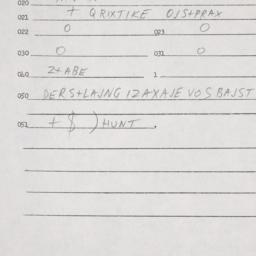 020
021 + QRIXTIKE OJS+PRAX
022 0 023 0
030 0 031 0
040 Z+ABE 1
050 DERS+LAJNG IZAXAJE VOS BAJST
051 + 8 ) HUNT .